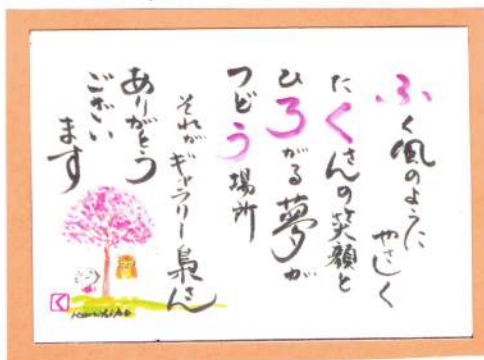 ふく風のように
やさしく
たくさんの笑顔と
ひろがる夢が
つどう場所
それがギャラリー梟さん
ありがとう
ござい
ます
く